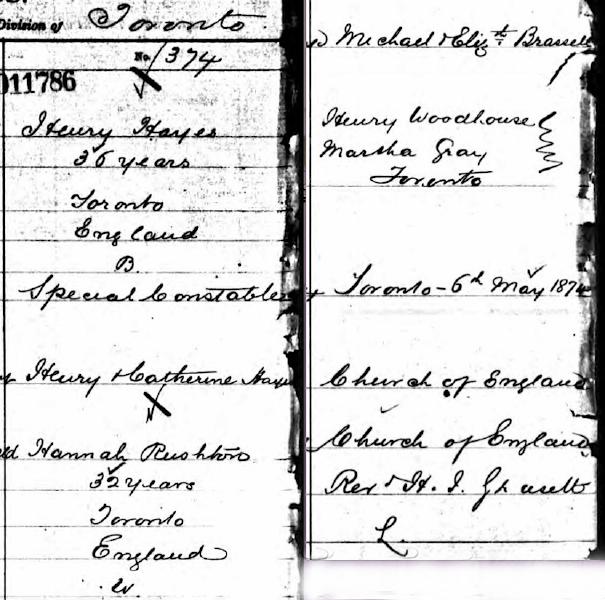 Division of Toronto
No. 1374
011786
Henry Hayes
36 years
Toronto
England
B.
Special Constable
Henry & Catherine Hayes
Hannah Rushton
32 years
Toronto
England
W.
Michael & Eliz.th Brassell
Henry Woodhouse
Marsha Gray
Toronto
Toronto - 6th May 1874
Church of England
Church of England
Revd H. J. Grasett
L.